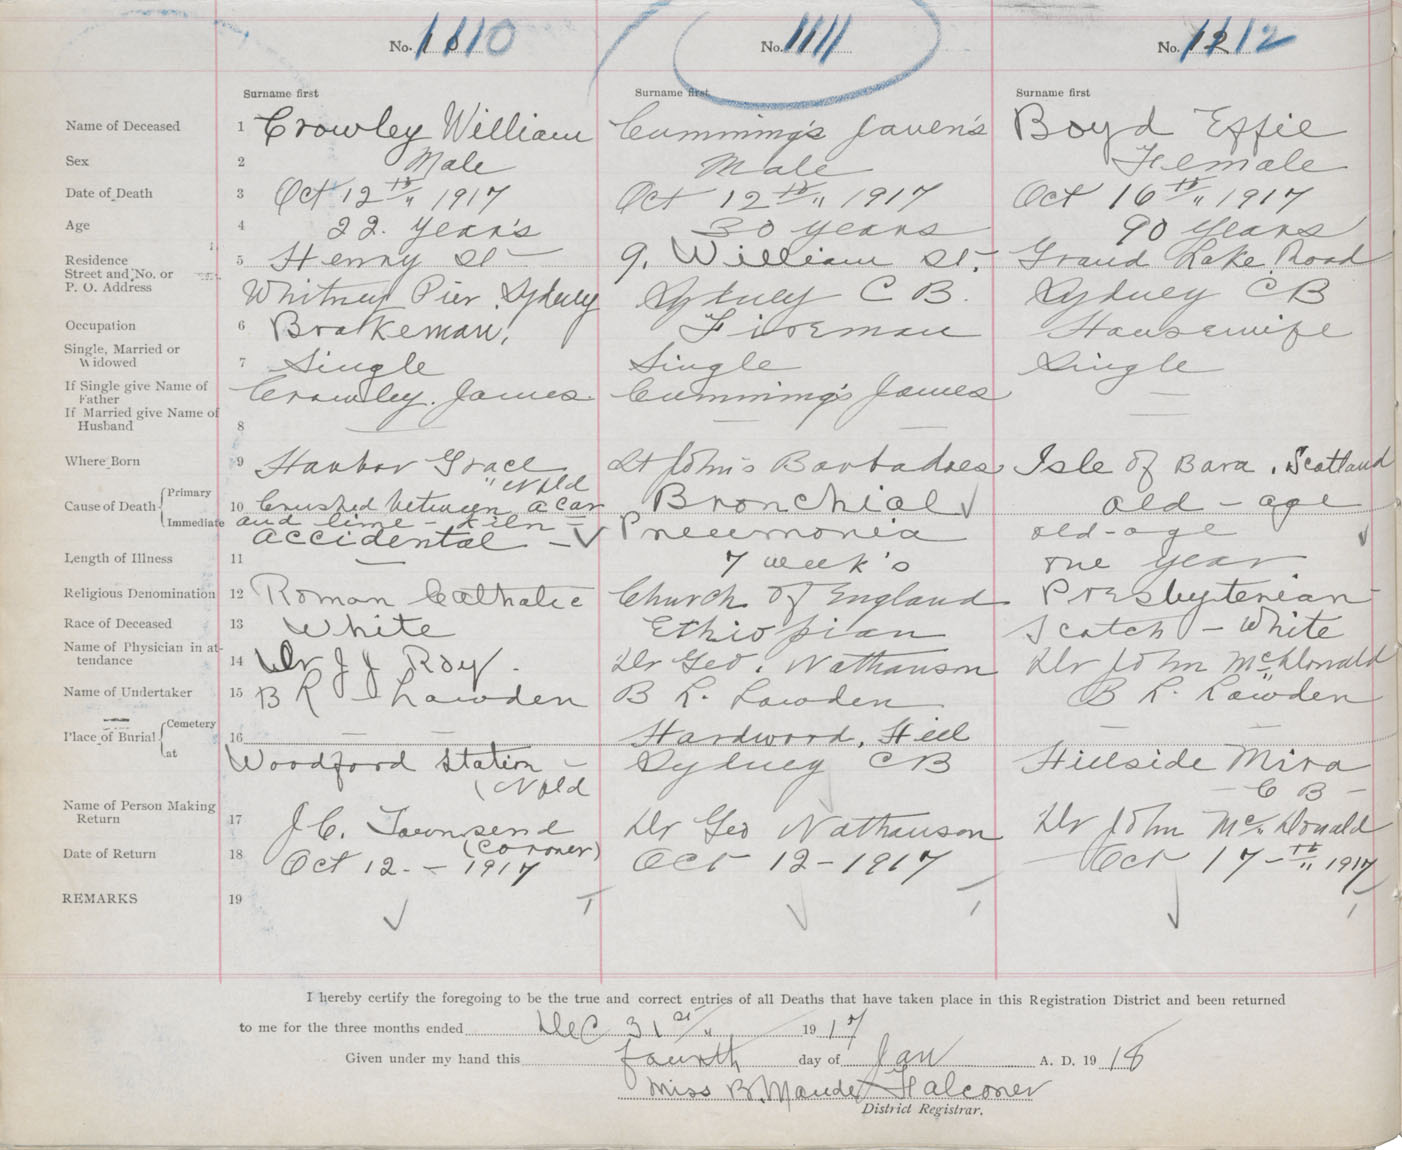 No. 1010 No. 1111 No. 1212
Surname first Surname first Surname first
Name of Deceased 1 Crowley William Cumming's Boyd Effie
Sex 2 Male Male Female
Date of Death 3 Oct 12th 1917 Oct 12th 1917 Oct 16th 1917
Age 4 22. Year's 30 years 90 Years
Residence 5 Henry St 9, William St. Grand Lake Road
Street and No. or
P. O. Address Whitney Pier Sydney Sydney C B. Sydney C B
Occupation 6 Brakeman. Fireman Housewife
Single, Married or
Widowed 7 Single Single Single
If Single give Name of
Father Crowley. James Cumming's James —
If Married give Name of
Husband 8 — — — —
Where Born 9 Harbor Grace Nfld St John's Barbadoes Isle of Bara. Scotland
Cause of Death Primary 10 Crushed between a car Bronchial old - age
Immediate and lime - kiln = Pneumonia old - age
accidental -
Length of Illness 11 — 7 week's one year
Religious Denomination 12 Roman Catholic Church of England Presbyterian
Race of Deceased 13 White Ethiopian Scotch - White
Name of Physician in at-
tendance 14 Dr J J Roy. Dr Geo. Nathanson Dr John McDonald
Name of Undertaker 15 B L Lowden B L. Lowden B L. Lowden
Place of Burial Cemetery 16 — — Hardwood, Hill — —
at Woodford Station - Sydney C B Hillside Mira
(Nfld - C B -
Name of Person Making
Return 17 J. C. Townsend Dr Geo Nathanson Dr John McDonald
(Coroner)
Date of Return 18 Oct 12. - 1917 Oct 12 - 1917 Oct 17 - th 1917
REMARKS 19
I hereby certify the foregoing to be the true and correct entries of all Deaths that have taken place in this Registration District and been returned
to me for the three months ended Dec 31st 1917
Given under my hand this fourth day of Jan A. D. 1918
Miss B. Maude Falconer
District Registrar.